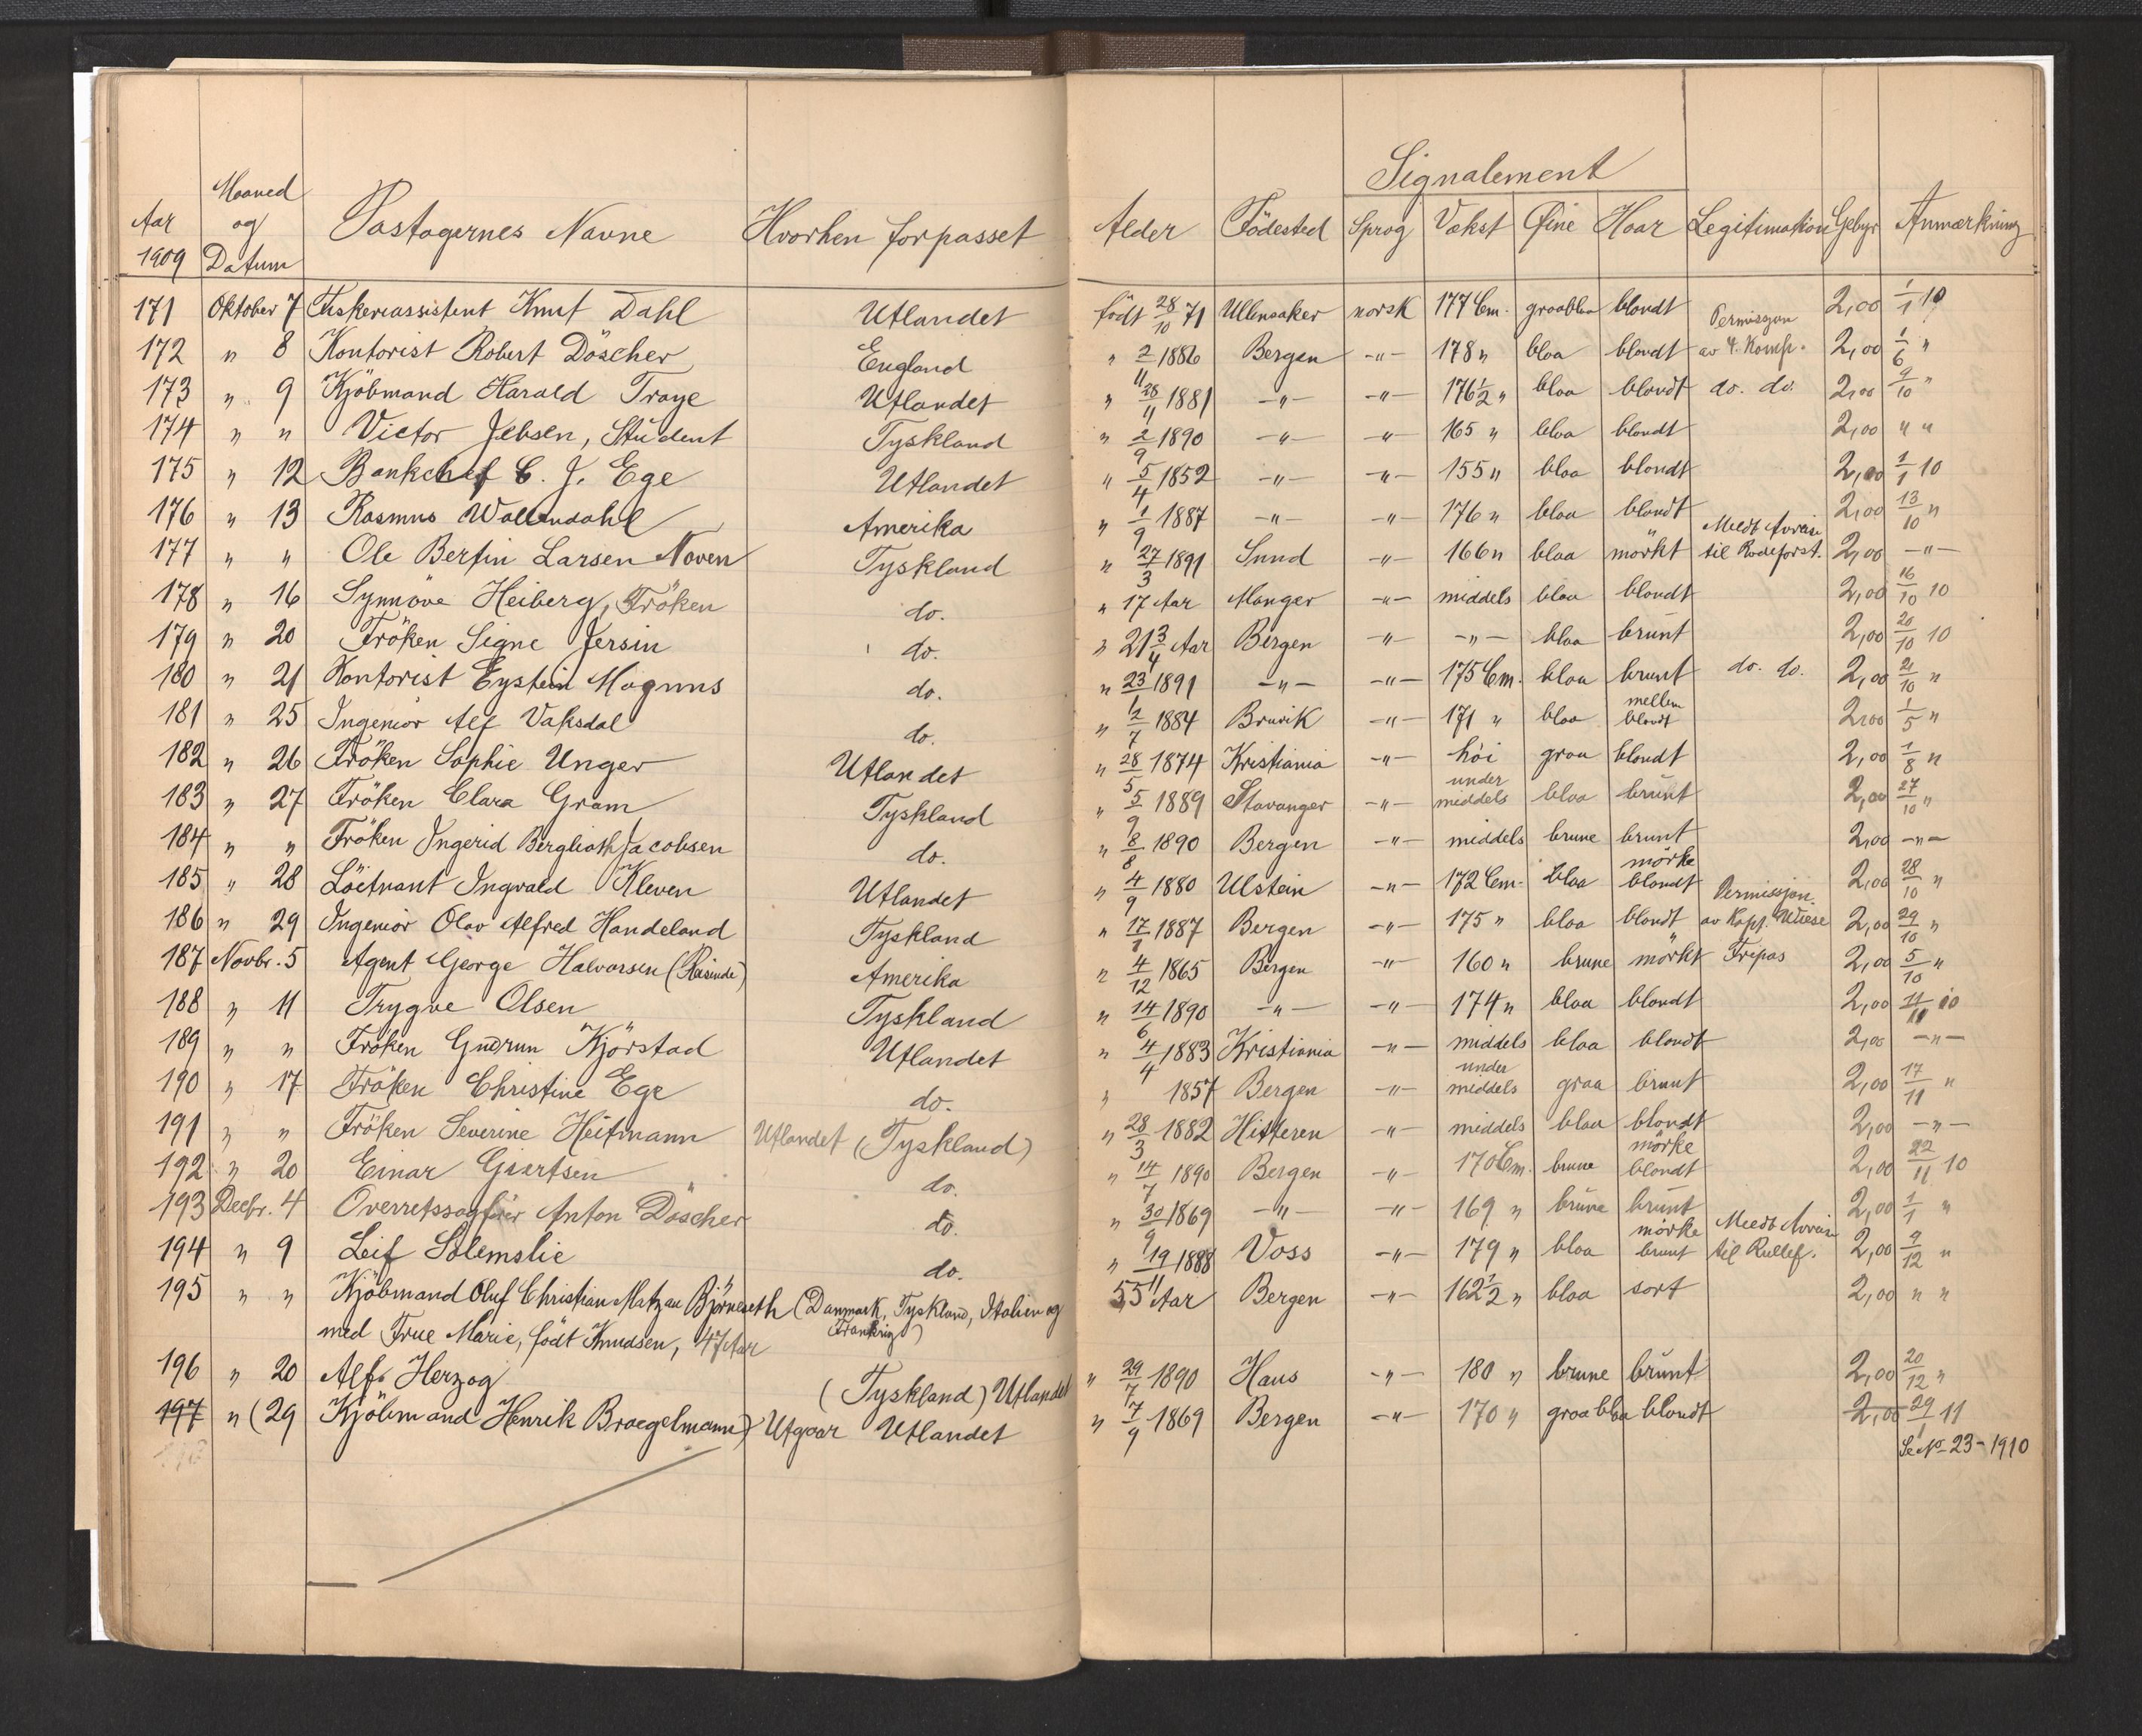 Signalement
Aar 1909 Maaned og Datum Pastagernes Navne Hvorhen forpasset Alder Födested Sprog Vækst Öine Haar Legitimation Gebyr Anmærkning
171 Oktober 7 Fiskeriassistent Knut Dahl Utlandet födt 28/10 71 Ullensaker norsk 177 Cm. graablaa blondt 2,00 1/1 10
172 " 8 Kontorist Robert Döscher England " 2/11 1886 Bergen -"- 178 " blaa blondt Permisjon av 4. Komp. 2,00 1/6 "
173 " 9 Kjöbmand Harald Troye Utlandet " 28/11 1881 -"- -"- 176 1/2 " blaa blondt do. do. 2,00 9/10 "
174 " " Victor Jebsen, Student Tyskland " 2/9 1890 -"- -"- 165 " blaa blondt 2,00 " "
175 " 12 Bankchef C. J. Ege Utlandet " 5/4 1852 -"- -"- 155 " blaa blondt 2,00 1/1 10
176 " 13 Rasmus Wallendahl Amerika " 1/9 1887 -"- -"- 176 " blaa blondt 2,00 13/10 "
177 " " Ole Bertin Larsen Noven Tyskland " 27/3 1891 Sund -"- 166 " blaa mörkt Meldt Avreise til Rodeforst. 2,00 -"-
178 " 16 Synnöve Heiberg, Fröken do. " 17 Aar Manger -"- middels blaa blondt 2,00 16/10 10
179 " 20 Fröken Signe Jersin do. " 21 3/4 Aar Bergen -"- -"- blaa brunt 2,00 20/10 10
180 " 21 Kontorist Eystein Magnus do. " 23/1 1891 -"- -"- 175 Cm. blaa brunt do. do. 2,00 21/10 "
181 " 25 Ingeniör Alf Vaksdal do. " 2/7 1884 Bruvik -"- 171 " blaa mellem blondt 2,00 1/5 "
182 " 26 Fröken Sophie Unger Utlandet " 28/5 1874 Kristiania -"- höi graa blondt 2,00 1/8 "
183 " 27 Fröken Clara Gram Tyskland " 5/9 1889 Stavanger -"- under middels blaa brunt 2,00 27/10 "
184 " " Fröken Ingerid Berglioth Jacobsen do. " 8/8 1890 Bergen -"- middels brune brunt 2,00 -"-
185 " 28 Löitnant Ingvald Kleven Utlandet " 4/9 1880 Ulstein -"- 172 Cm. blaa mörke blondt 2,00 28/10 "
186 " 29 Ingeniör Olav Alfred Handeland Tyskland " 17/1 1887 Bergen -"- 175 " blaa blondt Permisjon. av Kapt. Wiese 2,00 29/10 "
187 Novbr. 5 Agent George Halvorsen Amerika " 4/12 1865 Bergen -"- 160 " brune mörkt Fripas 2,00 5/10 "
188 " 11 Trygve Olsen Tyskland " 14/6 1890 -"- -"- 174 " blaa blondt 2,00 11/11 10
189 " " Fröken Gudrun Kjörstad Utlandet " 4/4 1883 Kristiania -"- middels blaa blondt 2,00 -"-
190 " 17 Fröken Christine Ege do. " 1857 Bergen -"- under middels graa brunt 2,00 17/11 "
191 " " Fröken Severine Heitmann Utlandet (Tyskland) " 28/3 1882 Hitteren -"- middels blaa blondt 2,00 -"-
192 " 20 Einar Giertsen " do. " 14/7 1890 Bergen -"- 170 Cm. brune mörke blondt 2,00 22/11 10
193 Decbr. 4 Overretssagförer Anton Döscher do. " 30/9 1869 -"- -"- 169 " brune brunt 2,00 1/1 "
194 " 9 Leif Solemslie do. " 19/11 1888 Voss -"- 179 " blaa mörke brunt Meldt Avreise til Rullef. 2,00 9/12 "
195 " " Kjöbmand Oluf Christian Matzau Björneseth (Danmark, Tyskland, Italien og Frankrig) 55 Aar Bergen -"- 162 1/2 " blaa sort 2,00 " "
med Frue Marie, födt Knudsen, 47 Aar
196 " 20 Alf Herzog (Tyskland) Utlandet " 29/7 1890 Haus -"- 180 " brune brunt 2,00 20/12 "
197 " (29 Kjöbmand Henrik Braegelmann) Utgaar Utlandet " 7/9 1869 Bergen -"- 170 " graablaa blondt 2,00 29/1 11
Se No 23-1910